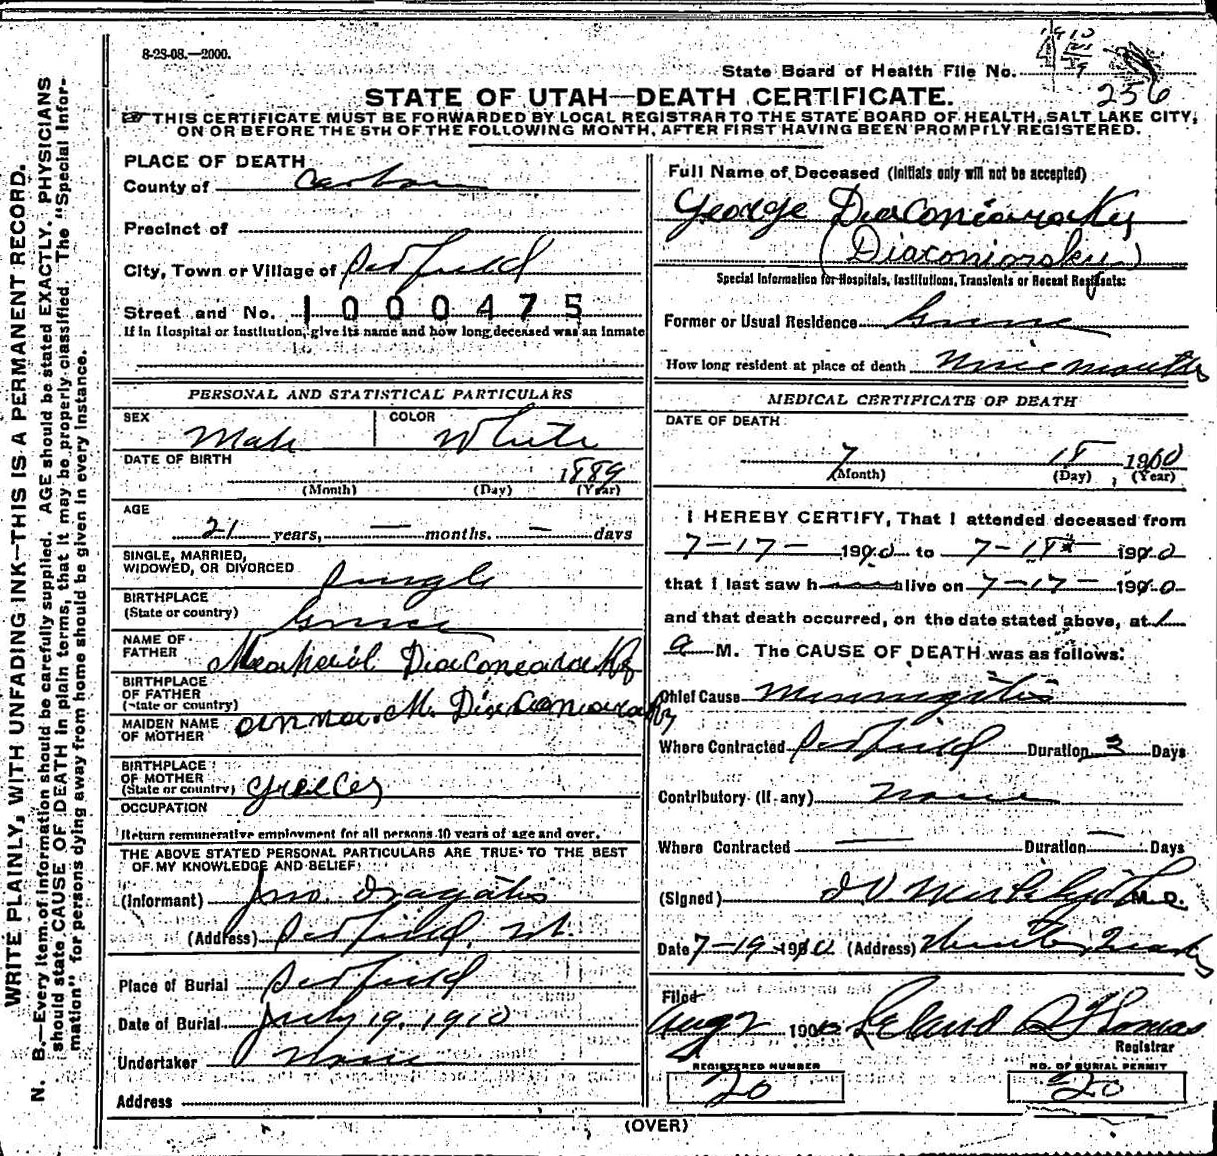 8-28-08.—2000.
1910
State Board of Health File No.
256
STATE OF UTAH—DEATH CERTIFICATE.
THIS CERTIFICATE MUST BE FORWARDED BY LOCAL REGISTRAR TO THE STATE BOARD OF HEALTH, SALT LAKE CITY,
ON OR BEFORE THE 5TH OF THE FOLLOWING MONTH, AFTER FIRST HAVING BEEN PROMPTLY REGISTERED.
WRITE PLAINLY, WITH UNFADING INK—THIS IS A PERMANENT RECORD.
N. B.—Every item of information should be carefully supplied. AGE should be stated EXACTLY. PHYSICIANS
should state CAUSE OF DEATH in plain terms, that it may be properly classified. The "Special Infor-
mation" for persons dying away from home should be given in every instance.
PLACE OF DEATH
County of Carbon
Precinct of
City, Town or Village of
Street and No. 1000475
If in Hospital or Institution, give its name and how long deceased was an inmate
PERSONAL AND STATISTICAL PARTICULARS
SEX Male COLOR White
DATE OF BIRTH 1889
(Month) (Day) (Year)
AGE
21 years, — months. — days
SINGLE, MARRIED,
WIDOWED, OR DIVORCED Single
BIRTHPLACE
(State or country) Greece
NAME OF
FATHER
BIRTHPLACE
OF FATHER
(State or country)
MAIDEN NAME
OF MOTHER Anna. M.
BIRTHPLACE
OF MOTHER
(State or country) Greece
OCCUPATION
Return remunerative employment for all persons 10 years of age and over.
THE ABOVE STATED PERSONAL PARTICULARS ARE TRUE TO THE BEST
OF MY KNOWLEDGE AND BELIEF:
(Informant) Jno. Dragatis
(Address) Ut.
Place of Burial
Date of Burial July 19, 1910
Undertaker None
Address
Full Name of Deceased (Initials only will not be accepted)
George Diaconiorsky
(Diaconiorsky)
Special Information for Hospitals, Institutions, Transients or Recent Residents:
Former or Usual Residence Greece
How long resident at place of death Nine months
MEDICAL CERTIFICATE OF DEATH
DATE OF DEATH
7 18 1910
(Month) (Day) (Year)
I HEREBY CERTIFY, That I attended deceased from
7-17- 1910 to 7-18 1910
that I last saw h alive on 7-17- 1910
and that death occurred, on the date stated above, at 1
a M. The CAUSE OF DEATH was as follows:
Chief Cause Meningitis
Where Contracted Duration 3 Days
Contributory (If any) None
Where Contracted — Duration — Days
(Signed) M.D.
Date 7-19-1910 (Address)
Filed
Aug 2 1910 Leland Thomas
Registrar
REGISTERED NUMBER
20
NO. OF BURIAL PERMIT
20
(OVER)